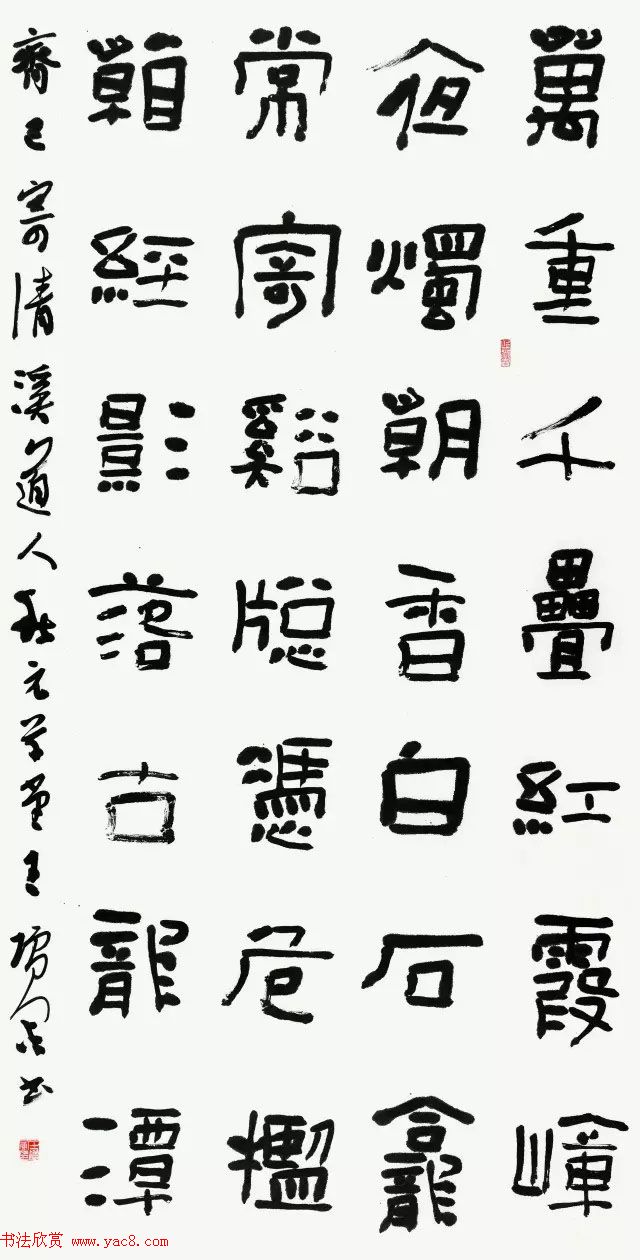 萬重千疊紅霞嶂
夜燭朝香白石龕
常寄谿牕憑危檻
看經影落古龍潭
齊己寄清溪道人 元草堂主 書
书法欣赏 www.yac8.com